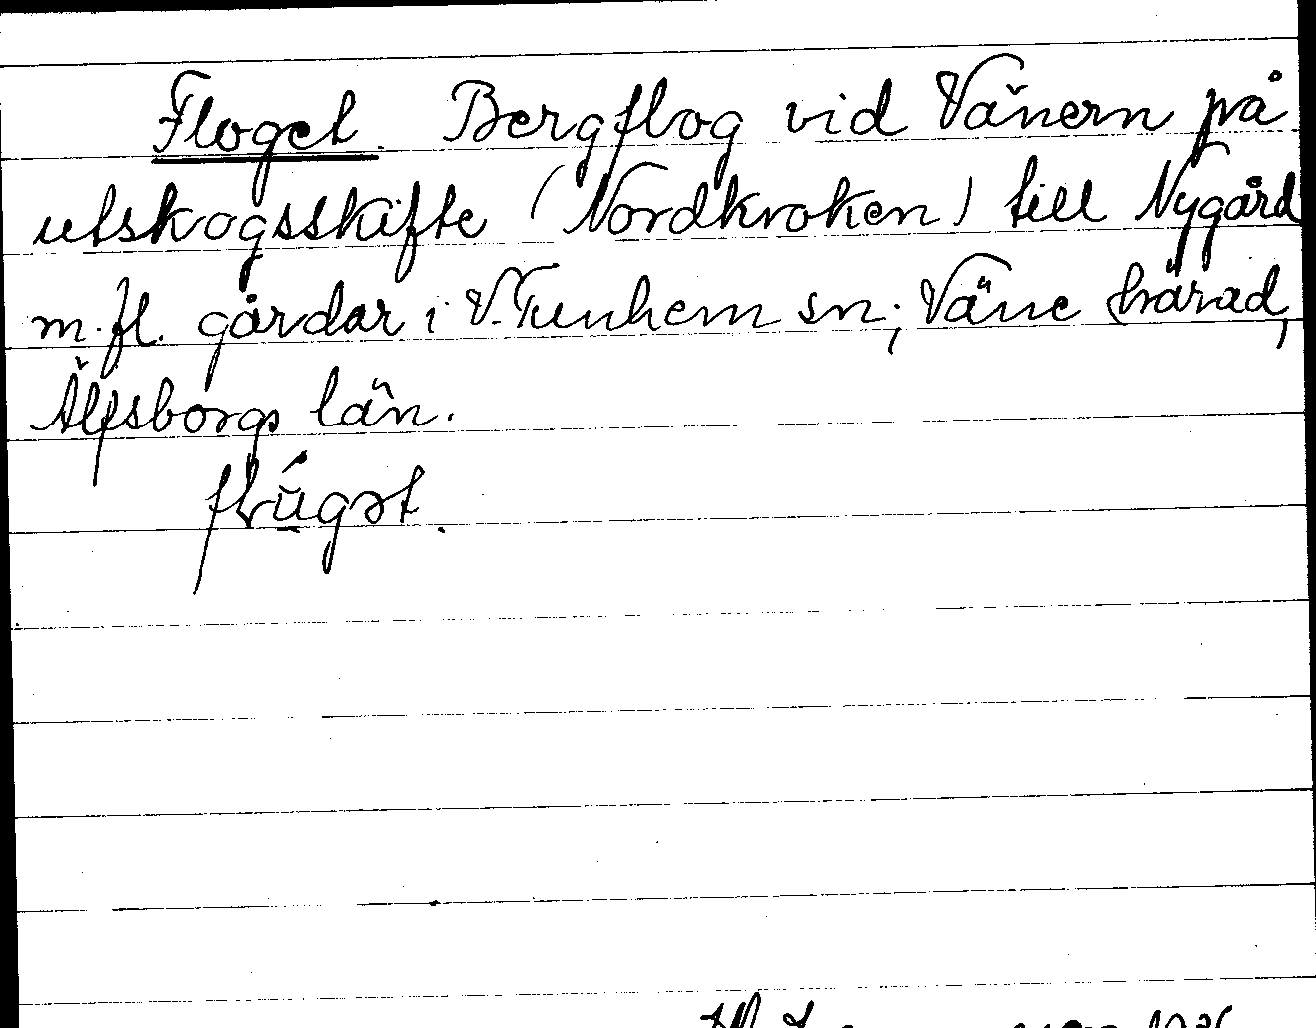 Floget. Bergflog vid Vänern på
utskogsskifte (Nordkroken) till Nygård
m. fl. gårdar i V. Tunhem sn; Väne härad,
Älfsborgs län.